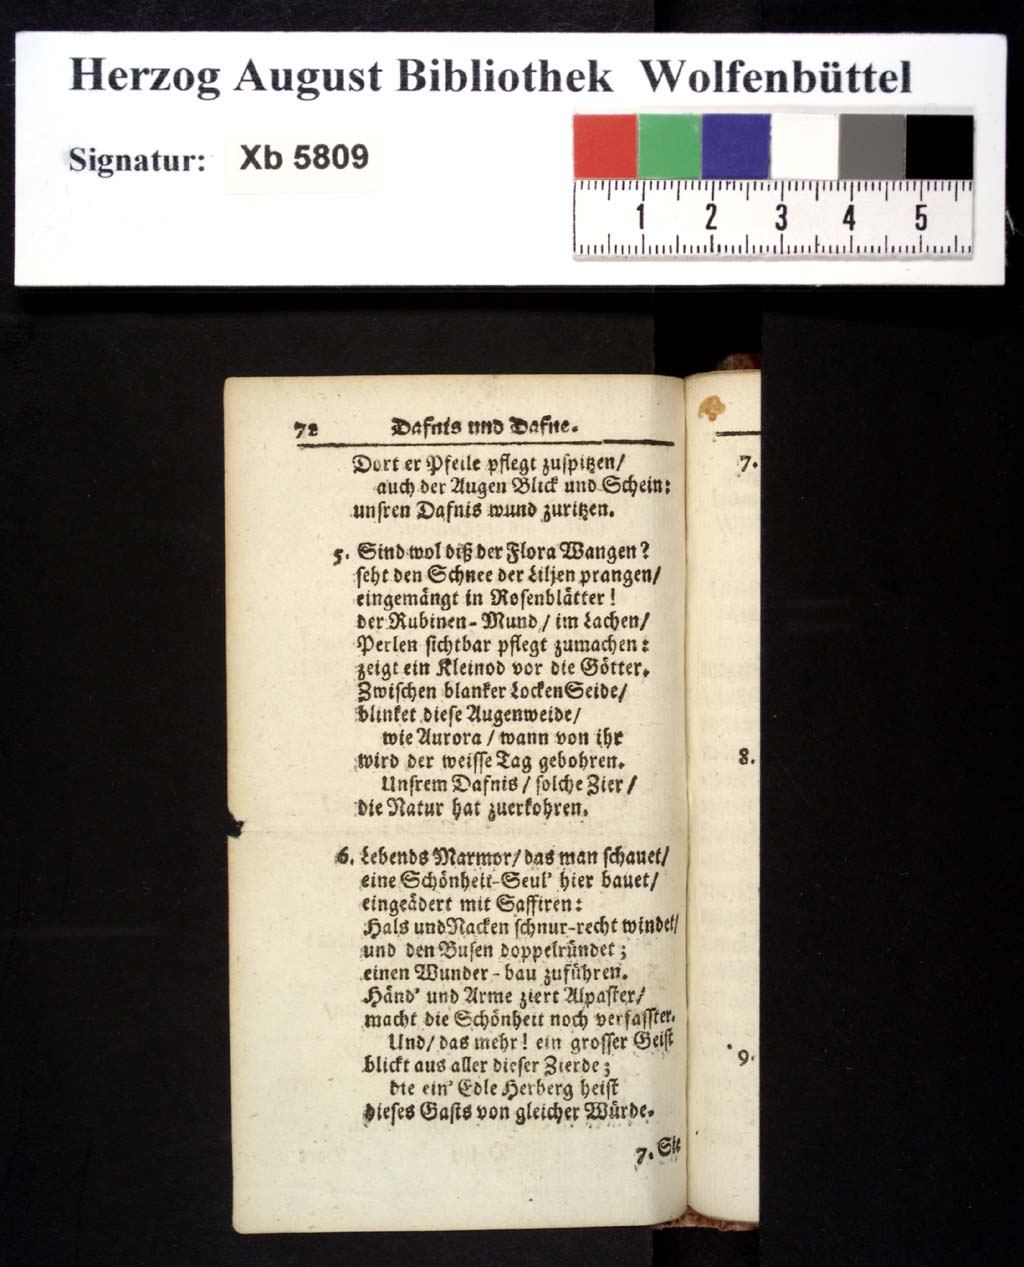 Herzog August Bibliothek Wolfenbüttel
Signatur: Xb 5809
1 2 3 4 5
72 Dafnis und Dafne.
Dort er Pfeile pflegt zuspitzen/
auch der Augen Blick und Schein:
unsren Dafnis wund zuritzen.
5. Sind wol diß der Flora Wangen?
seht den Schnee der Liljen prangen/
eingemängt in Rosenblätter!
der Rubinen-Mund/ im Lachen/
Perlen sichtbar pflegt zumachen:
zeigt ein Kleinod vor die Götter.
Zwischen blanker LockenSeide/
blinket diese Augenweide/
wie Aurora/ wann von ihr
wird der weisse Tag gebohren.
Unsrem Dafnis/ solche Zier/
die Natur hat zuerkohren.
6. Lebends Marmor/ das man schauet/
eine Schönheit-Seul' hier bauet/
eingeädert mit Saffiren:
Hals und Nacken schnur-recht windet/
und den Busen doppelründet;
einen Wunder-bau zuführen.
Händ' und Arme ziert Alpaster/
macht die Schönheit noch verfasster.
Und/ das mehr! ein grosser Geist
blickt aus aller dieser Zierde;
die ein' Edle Herberg heist
dieses Gasts von gleicher Würde.
7. Sie
7.
8.
9.